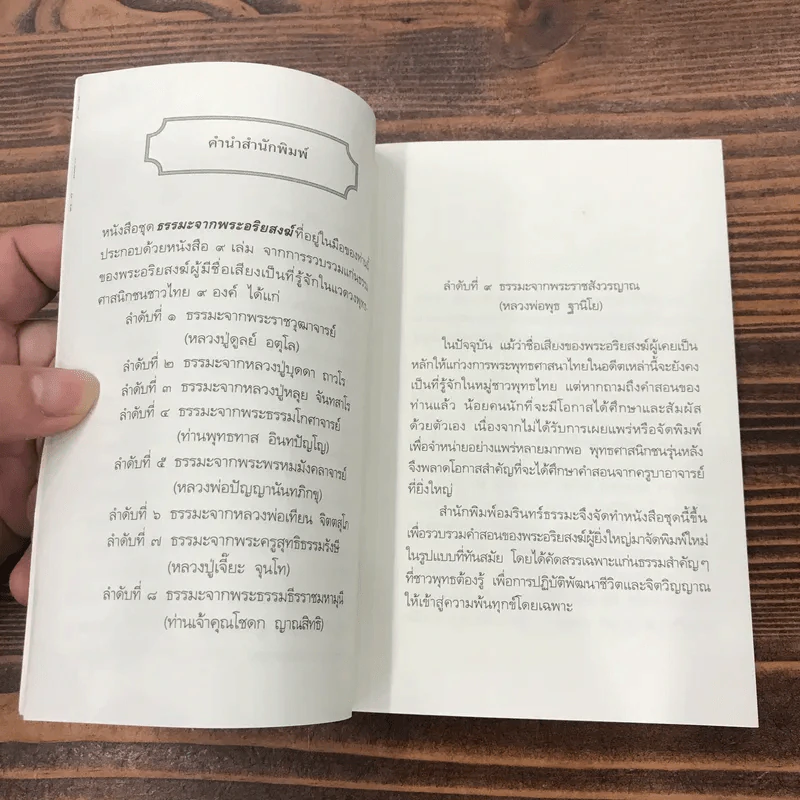 คำนำสำนักพิมพ์
หนังสือชุด ธรรมะจากพระอริยสงฆ์ ที่อยู่ในมือของท่านนี้
ประกอบด้วยหนังสือ ๙ เล่ม จากการรวบรวมแก่นธรรม
ของพระอริยสงฆ์ผู้มีชื่อเสียงเป็นที่รู้จักในแวดวงพุทธ
ศาสนิกชนชาวไทย ๙ องค์ ได้แก่
ลำดับที่ ๑ ธรรมะจากพระราชวุฒาจารย์
(หลวงปู่ดูลย์ อตุโล)
ลำดับที่ ๒ ธรรมะจากหลวงปู่บุดดา ถาวโร
ลำดับที่ ๓ ธรรมะจากหลวงปู่หลุย จันทสาโร
ลำดับที่ ๔ ธรรมะจากพระธรรมโกศาจารย์
(ท่านพุทธทาส อินทปัญโญ)
ลำดับที่ ๕ ธรรมะจากพระพรหมมังคลาจารย์
(หลวงพ่อปัญญานันทภิกขุ)
ลำดับที่ ๖ ธรรมะจากหลวงพ่อเทียน จิตตสุโภ
ลำดับที่ ๗ ธรรมะจากพระครูสุทธิธรรมรังษี
(หลวงปู่เจี๊ยะ จุนโท)
ลำดับที่ ๘ ธรรมะจากพระธรรมธีรราชมหามุนี
(ท่านเจ้าคุณโชดก ญาณสิทธิ)
ลำดับที่ ๙ ธรรมะจากพระราชสังวรญาณ
(หลวงพ่อพุธ ฐานิโย)
ในปัจจุบัน แม้ว่าชื่อเสียงของพระอริยสงฆ์ผู้เคยเป็น
หลักให้แก่วงการพระพุทธศาสนาไทยในอดีตเหล่านี้จะยังคง
เป็นที่รู้จักในหมู่ชาวพุทธไทย แต่หากถามถึงคำสอนของ
ท่านแล้ว น้อยคนนักที่จะมีโอกาสได้ศึกษาและสัมผัส
ด้วยตัวเอง เนื่องจากไม่ได้รับการเผยแพร่หรือจัดพิมพ์
เพื่อจำหน่ายอย่างแพร่หลายมากพอ พุทธศาสนิกชนรุ่นหลัง
จึงพลาดโอกาสสำคัญที่จะได้ศึกษาคำสอนจากครูบาอาจารย์
ที่ยิ่งใหญ่
สำนักพิมพ์อมรินทร์ธรรมะจึงจัดทำหนังสือชุดนี้ขึ้น
เพื่อรวบรวมคำสอนของพระอริยสงฆ์ผู้ยิ่งใหญ่มาจัดพิมพ์ใหม่
ในรูปแบบที่ทันสมัย โดยได้คัดสรรเฉพาะแก่นธรรมสำคัญๆ
ที่ชาวพุทธต้องรู้ เพื่อการปฏิบัติพัฒนาชีวิตและจิตวิญญาณ
ให้เข้าสู่ความพ้นทุกข์โดยเฉพาะ